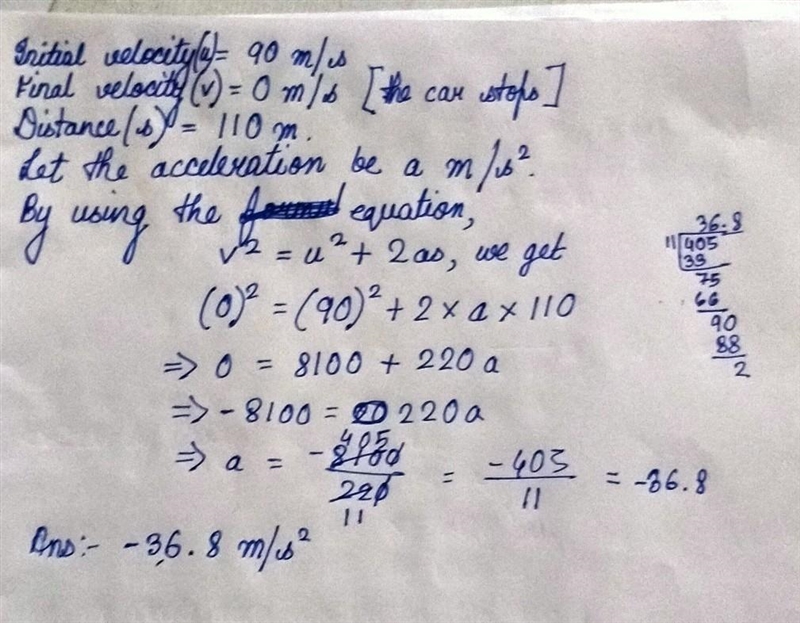 Initial velocity(u) = 90 m/s
Final velocity(v) = 0 m/s [the car stops]
Distance(s) = 110 m.
Let the acceleration be a m/s².
By using the equation,
v² = u² + 2as, we get
(0)² = (90)² + 2 × a × 110
⇒ 0 = 8100 + 220 a
⇒ - 8100 = 220 a
⇒ a = -8100/220 = -405/11 = -36.8
405
11
Ans:- -36.8 m/s²
36.8
11 405
33
75
66
90
88
2